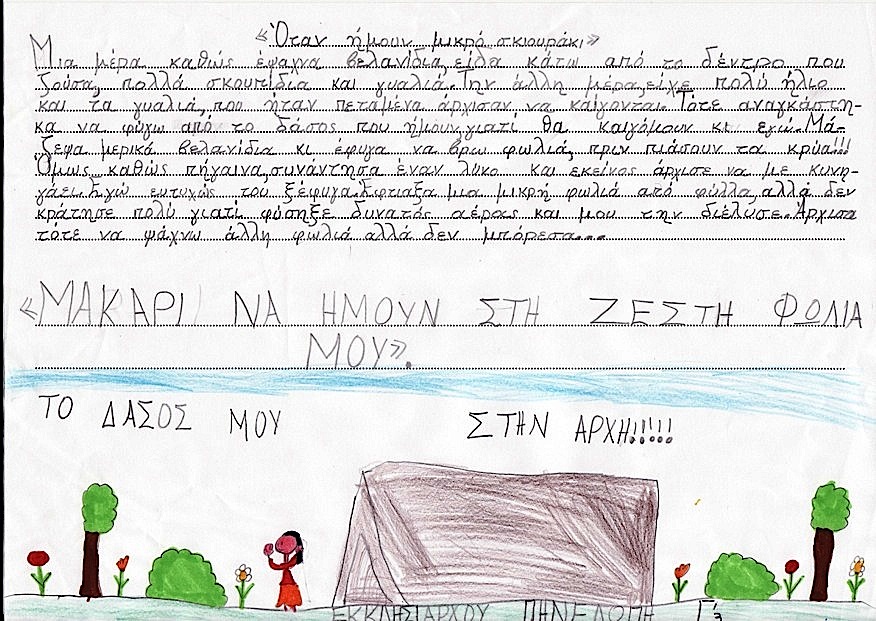 «Όταν ήμουν μικρό σκιουράκι»
Μια μέρα καθώς έψαχνα βελανίδια,είδα κάτω από το δέντρο που
ζούσα, πολλά σκουπίδια και γυαλιά.Την άλλη μέρα,είχε πολύ ήλιο
και τα γυαλιά,που ήταν πεταμένα άρχισαν να καίγονται.Τότε αναγκάστη-
κα να φύγω από το δάσος που ήμουν,γιατί θα καιγόμουν κι εγώ.Μά-
ζεψα μερικά βελανίδια κι έφυγα να βρω φωλιά, πριν πιάσουν τα κρύα!!!
Όμως καθώς πήγαινα,συνάντησα έναν λύκο και εκείνος άρχισε να με κυνη-
γάει.Εγώ ευτυχώς του ξέφυγα.Έφτιαξα μια μικρή φωλιά από φύλλα,αλλά δεν
κράτησε πολύ γιατί φύσηξε δυνατός αέρας και μου την διέλυσε.Άρχισα
τότε να ψάχνω άλλη φωλιά αλλά δεν μπόρεσα...
«ΜΑΚΑΡΙ ΝΑ ΗΜΟΥΝ ΣΤΗ ΖΕΣΤΗ ΦΩΛΙΑ
ΜΟΥ».
ΤΟ ΔΑΣΟΣ ΜΟΥ ΣΤΗΝ ΑΡΧΗ!!!!!
ΕΚΚΛΗΣΙΑΡΧΟΥ ΠΗΝΕΛΟΠΗ Γ'3